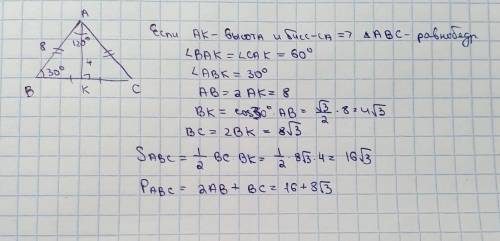 Если AK - высота и бисс-са => △ABC - равнобедр
∠BAK = ∠CAK = 60°
∠ABK = 30°
AB = 2AK = 8
BK = cos30° · AB = √3/2 · 8 = 4√3
BC = 2BK = 8√3
S_ABC = 1/2 BC · BK = 1/2 · 8√3 · 4 = 16√3
P_ABC = 2AB + BC = 16 + 8√3
A
120°
8
4
30°
B
K
C